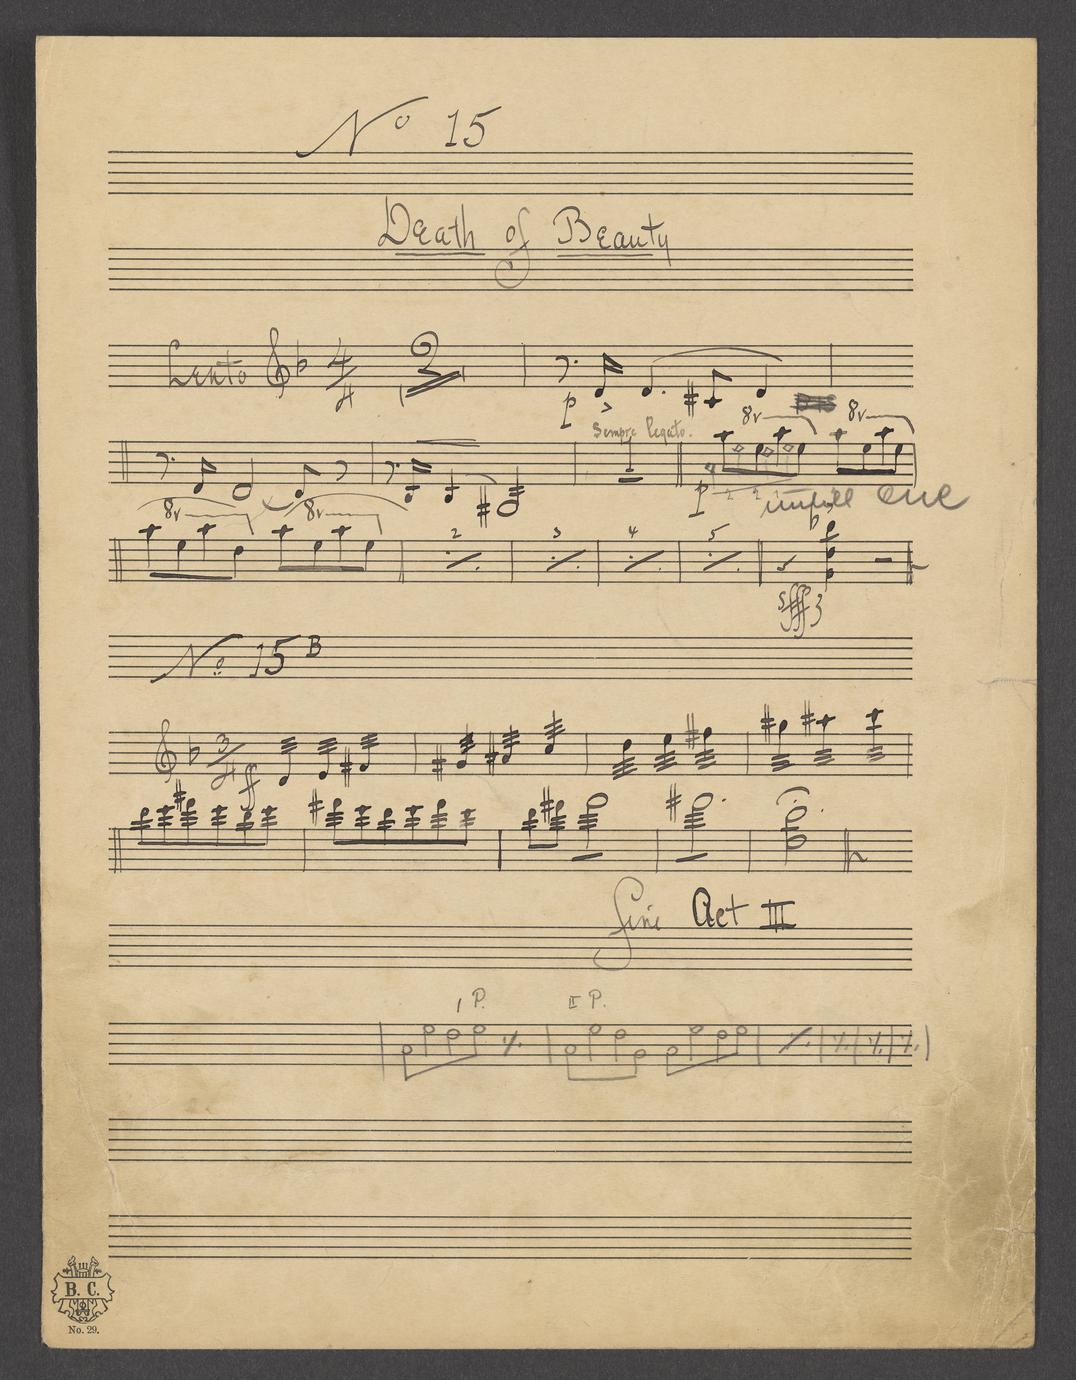 Nº 15
Death of Beauty
Lento 4/4 2
p >
sempre legato. 8v 8v
p until cue
8v 8v
2 3 4 5
sfff
Nº 15 B
3/4 ff
Fine Act III
I P. II P.
B. C.
No. 29.